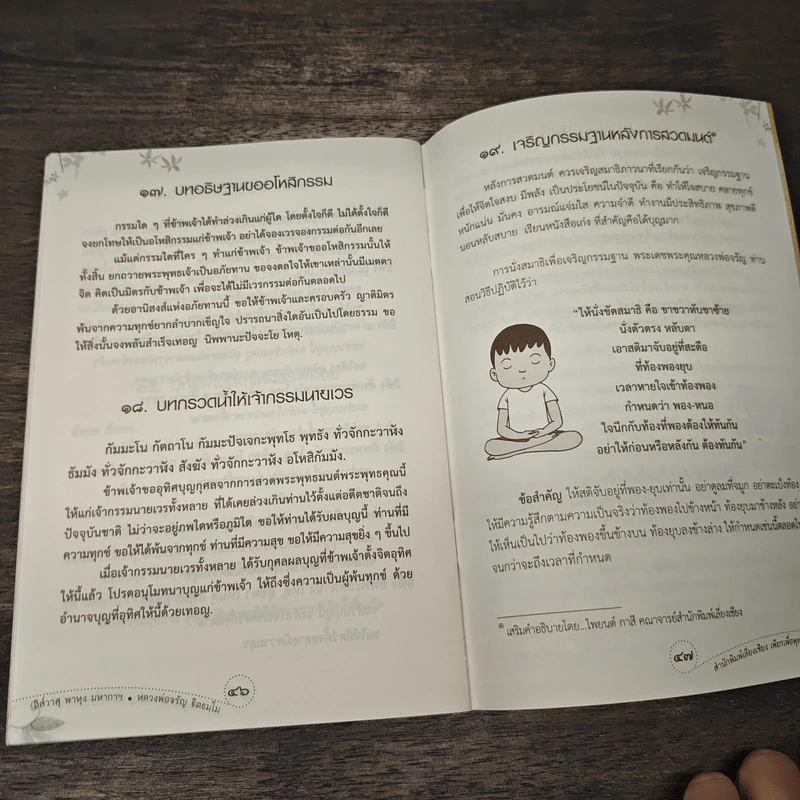 ๑๗. บทอธิษฐานขออโหสิกรรม
กรรมใด ๆ ที่ข้าพเจ้าได้ทำล่วงเกินแก่ผู้ใด โดยตั้งใจก็ดี ไม่ได้ตั้งใจก็ดี
จงยกโทษให้เป็นอโหสิกรรมแก่ข้าพเจ้า อย่าได้จองเวรจองกรรมต่อกันอีกเลย
แม้แต่กรรมใดที่ใคร ๆ ทำแก่ข้าพเจ้า ข้าพเจ้าขออโหสิกรรมนั้นให้
ทั้งสิ้น ยกถวายพระพุทธเจ้าเป็นอภัยทาน ขอจงดลใจให้เขาเหล่านั้นมีเมตตา
จิต คิดเป็นมิตรกับข้าพเจ้า เพื่อจะได้ไม่มีเวรกรรมต่อกันตลอดไป
ด้วยอานิสงส์แห่งอภัยทานนี้ ขอให้ข้าพเจ้าและครอบครัว ญาติมิตร
พ้นจากความทุกข์ยากลำบากเข็ญใจ ปรารถนาสิ่งใดอันเป็นไปโดยธรรม ขอ
ให้สิ่งนั้นจงพลันสำเร็จเทอญ นิพพานะปัจจะโย โหตุ.
๑๘. บทกรวดน้ำให้เจ้ากรรมนายเวร
กัมมะโน กัตถาโน กัมมะปัจเจกะพุทโธ พุทธัง ทั่วจักกะวาฬัง
ธัมมัง ทั่วจักกะวาฬัง สังฆัง ทั่วจักกะวาฬัง อโหสิกัมมัง.
ข้าพเจ้าขออุทิศบุญกุศลจากการสวดพระพุทธมนต์พระพุทธคุณนี้
ให้แก่เจ้ากรรมนายเวรทั้งหลาย ที่ได้เคยล่วงเกินท่านไว้ตั้งแต่อดีตชาติจนถึง
ปัจจุบันชาติ ไม่ว่าจะอยู่ภพใดหรือภูมิใด ขอให้ท่านได้รับผลบุญนี้ ท่านที่มี
ความทุกข์ ขอให้ได้พ้นจากทุกข์ ท่านที่มีความสุข ขอให้มีความสุขยิ่ง ๆ ขึ้นไป
เมื่อเจ้ากรรมนายเวรทั้งหลาย ได้รับกุศลผลบุญที่ข้าพเจ้าตั้งจิตอุทิศ
ให้นี้แล้ว โปรดอนุโมทนาบุญแก่ข้าพเจ้า ให้ถึงซึ่งความเป็นผู้พ้นทุกข์ ด้วย
อำนาจบุญที่อุทิศให้นี้ด้วยเทอญ.
๔๖
พาหุง มหากาฯ • หลวงพ่อจรัญ ฐิตธมฺโม
๑๙. เจริญกรรมฐานหลังการสวดมนต์
หลังการสวดมนต์ ควรเจริญสมาธิภาวนาที่เรียกกันว่า เจริญกรรมฐาน
เพื่อให้จิตใจสงบ มีพลัง เป็นประโยชน์ในปัจจุบัน คือ ทำให้ใจสบาย คลายทุกข์
หนักแน่น มั่นคง อารมณ์แจ่มใส ความจำดี ทำงานมีประสิทธิภาพ สุขภาพดี
นอนหลับสบาย เรียนหนังสือเก่ง ที่สำคัญคือได้บุญมาก
การนั่งสมาธิเพื่อเจริญกรรมฐาน พระเดชพระคุณหลวงพ่อจรัญ ท่าน
สอนวิธีปฏิบัติไว้ว่า
"ให้นั่งขัดสมาธิ คือ ขาขวาทับขาซ้าย
นั่งตัวตรง หลับตา
เอาสติมาจับอยู่ที่สะดือ
ที่ท้องพองยุบ
เวลาหายใจเข้าท้องพอง
กำหนดว่า พอง-หนอ
ใจนึกกับท้องที่พองต้องให้ทันกัน
อย่าให้ก่อนหรือหลังกัน ต้องทันกัน"
ข้อสำคัญ ให้สติจับอยู่ที่พอง-ยุบเท่านั้น อย่าดูลมที่จมูก อย่าตะเบ็งท้อง
ให้มีความรู้สึกตามความเป็นจริงว่าท้องพองไปข้างหน้า ท้องยุบมาข้างหลัง อย่า
ให้เห็นเป็นไปว่าท้องพองขึ้นข้างบน ท้องยุบลงข้างล่าง ให้กำหนดเช่นนี้ตลอดไป
จนกว่าจะถึงเวลาที่กำหนด
เสริมคำอธิบายโดย...ไพยนต์ กาสี คณาจารย์สำนักพิมพ์เลี่ยงเชียง
๔๗
สำนักพิมพ์เลี่ยงเชียง